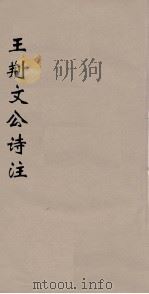 王荆文公诗注
www.mtoou.info